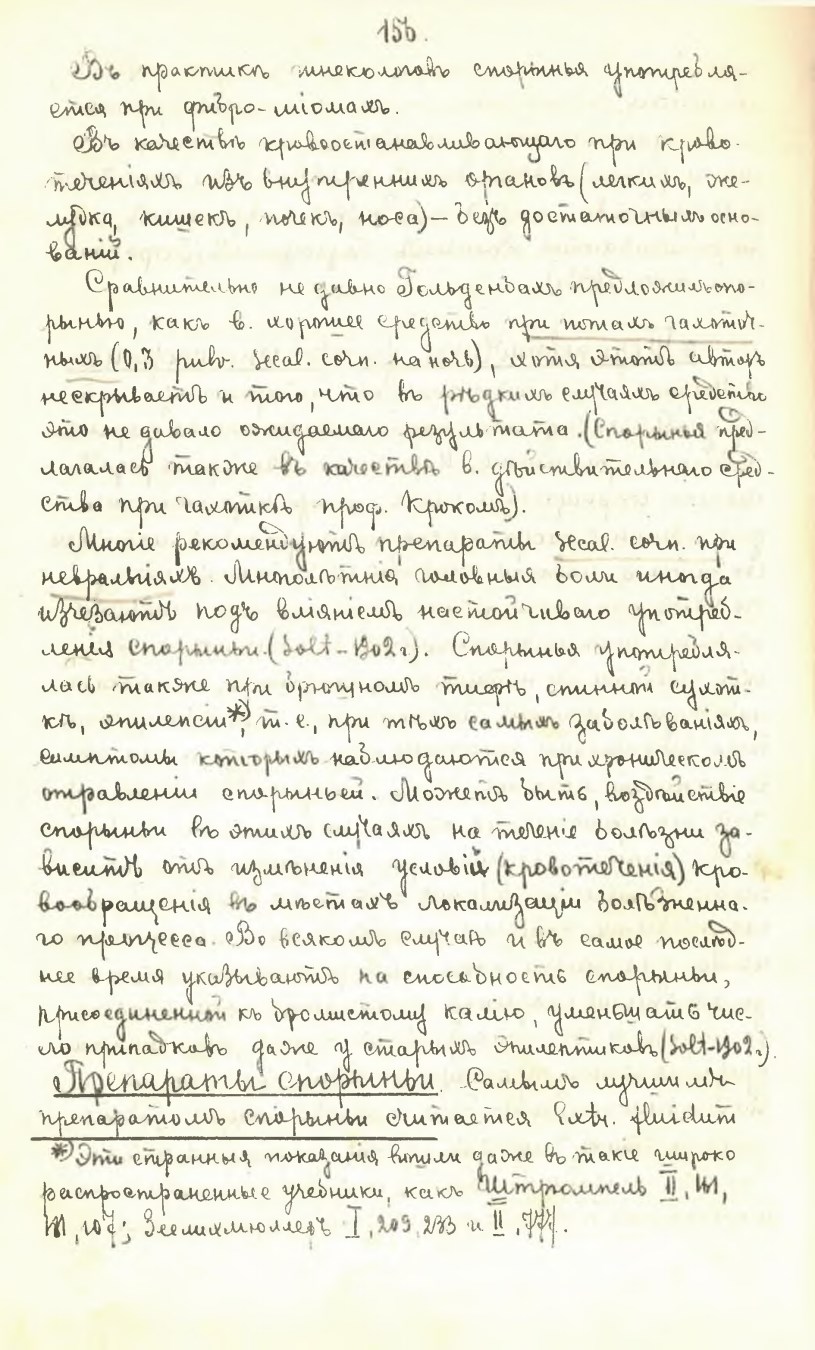 156.
Въ практикѣ гинекологовъ спорынья употребля-
ется при фибро-міомахъ.
Въ качествѣ кровоостанавливающаго при крово-
теченіяхъ изъ внутреннихъ органовъ (легкихъ, же-
лудка, кишекъ, почекъ, носа) — безъ достаточныхъ осно-
ваній.
Сравнительно недавно Гольденбахъ предложилъ спо-
рынью, какъ в. хорошее средство при потахъ чахоточ-
ныхъ (0,3 pulv. Secal. corn. на ночь), хотя этотъ авторъ
нескрываетъ и того, что въ рѣдкихъ случаяхъ средство
это не давало ожидаемаго результата. (Спорынья пред-
лагалась также въ качествѣ в. дѣйствительнаго сред-
ства при чахоткѣ проф. Крокомъ).
Многіе рекомендуютъ препараты Secal. corn. при
невральгіяхъ. Многолѣтнія головныя боли иногда
изчезаютъ подъ вліяніемъ настойчиваго употреб-
ленія спорыньи (Solt-1902 г). Спорынья употребля-
лась также при брюшномъ тифѣ, спинной сухот-
кѣ, эпилепсіи*), т. е., при тѣхъ самыхъ заболѣваніяхъ,
симптомы которыхъ наблюдаются при хроническомъ
отравленіи спорыньей. Можетъ быть, воздѣйствіе
спорыньи въ этихъ случаяхъ на теченіе болѣзни за-
виситъ отъ измѣненія условій (кровотеченія) кро-
вообращенія въ мѣстахъ локализаціи болѣзненна-
го процесса. Во всякомъ случаѣ и въ самое послѣд-
нее время указываютъ на способность спорыньи,
присоединенной къ бромистому калію, уменьшать чис-
ло припадковъ даже у старыхъ эпилептиковъ (Solt-1902 г.).
Препараты спорыньи. Самымъ лучшимъ
препаратомъ спорыньи считается Extr. fluidum
*) Эти странныя показанія вошли даже въ такіе широко
распространенные учебники, какъ Штрюмпель II,
107; Зеелихмюллеръ I, 209, 233 и II, 777.